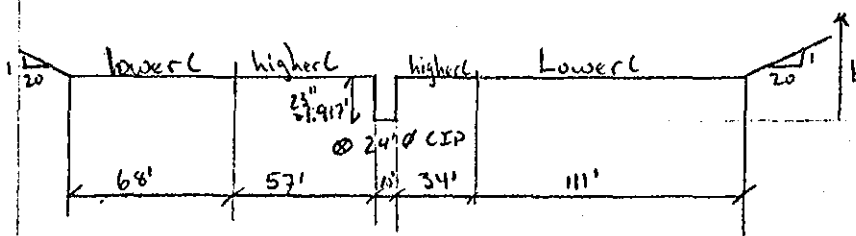 lowerC higherC higherC LowerC
1 20
20 1
23"
1.917'
⊗ 24" Ø CIP
68' 57' 34' 111'